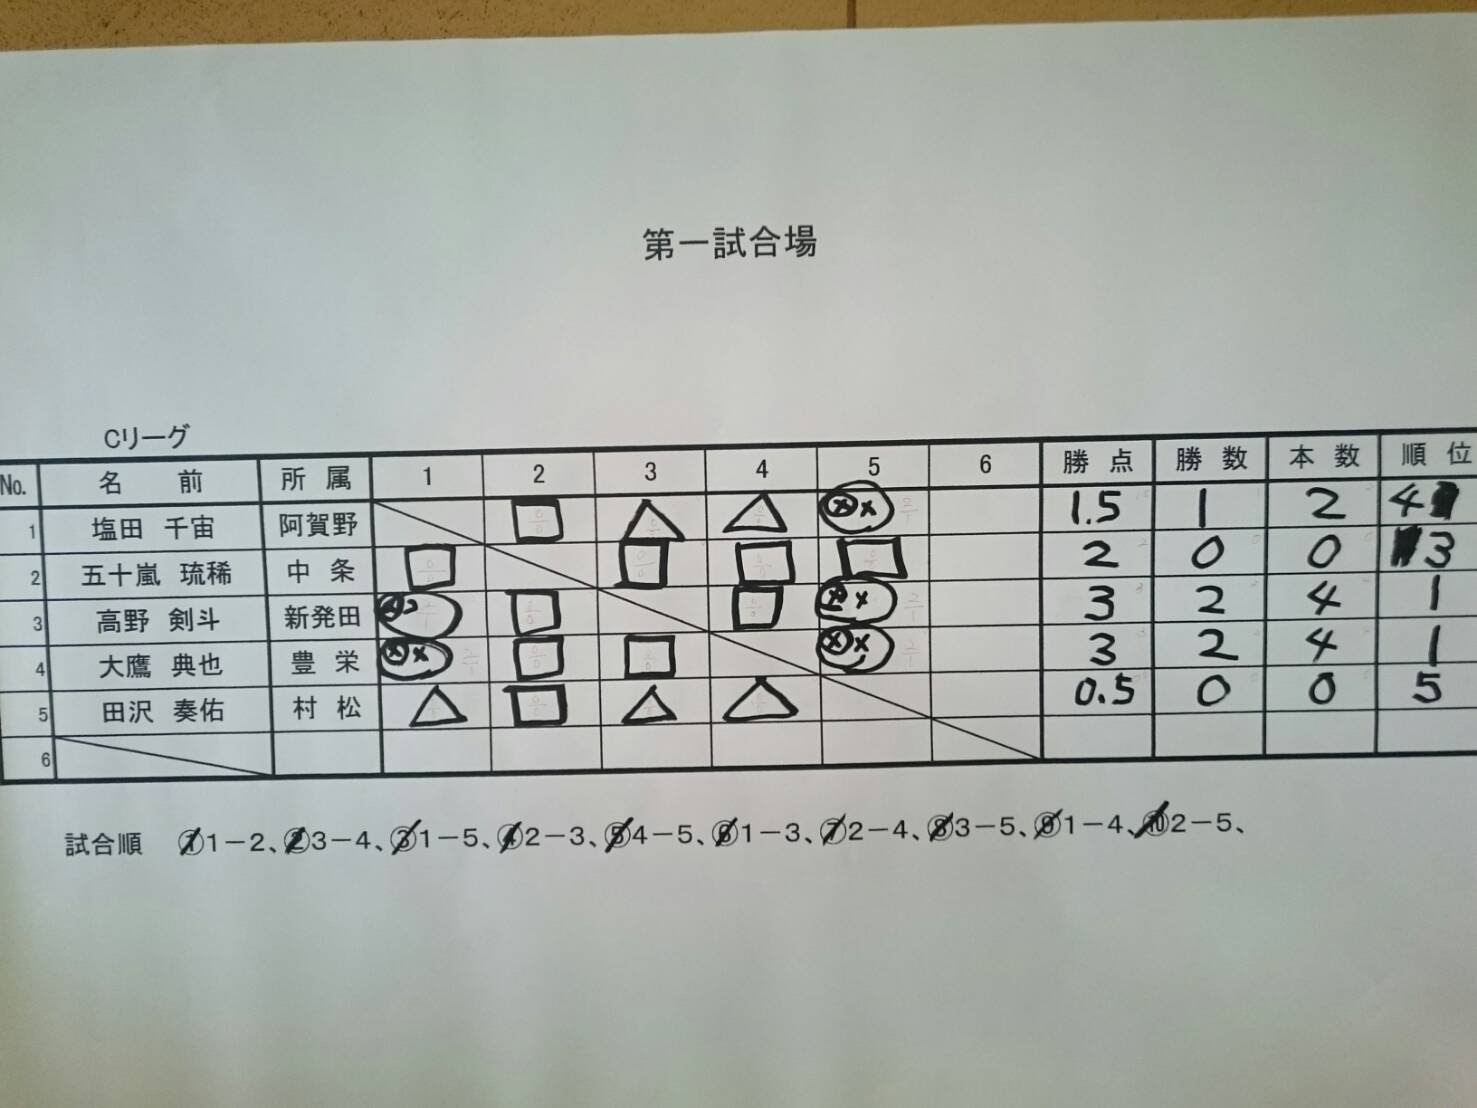 第一試合場
Cリーグ
No. 名 前 所 属 1 2 3 4 5 6 勝 点 勝 数 本 数 順 位
1 塩田 千宙 阿賀野 □ △ △ ⓧx 1.5 1 2 4
2 五十嵐 琉稀 中 条 □ □ □ □ 2 0 0 3
3 高野 剣斗 新発田 □ □ x 3 2 4 1
4 大鷹 典也 豊 栄 ⓧx □ □ ⓧx 3 2 4 1
5 田沢 奏佑 村 松 △ □ △ △ 0.5 0 0 5
6
試合順 ①1－2、②3－4、③1－5、④2－3、⑤4－5、⑥1－3、⑦2－4、⑧3－5、⑨1－4、⑩2－5、